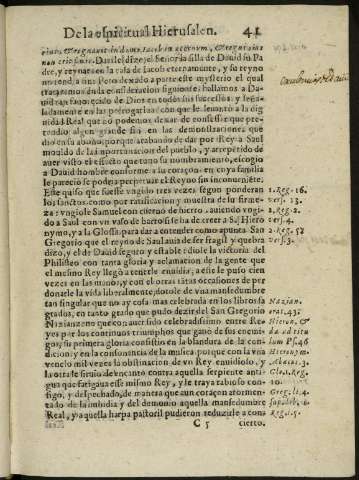 De la espiritual Hierusalen. 41
eius, & regnauit in domo Iacob in æternum, & regni eius
non erit finis. Darale (dize) el Señor la silla de Dauid su Pa
dre, y reynara en la casa de Iacob eternamente, y su reyno
no tendra fin. Pero dexado a parte este mysterio el qual
trataremos en la consideracion siguiente: hallamos a Da
uid tan fauorecido de Dios en todos sus sucessos: y señala-
damente en las prerogatiuas con que le leuantò a la dig
nidad Real que no podemos dexar de confessar que pre-
tendio algun grande fin en las demonstraciones que
hizo en su abono; porque acabando de dar por Rey a Saul
mouido de la importunacion del pueblo, y arrepetido de
auer visto el efecto que tuuo su nombramiento, escogio
a Dauid hombre conforme a su coraçon: en cuya familia
le pareció se podria perpetuar el Reyno sin inconueniẽte.
Este quiso que fuesse vngido tres vezes segun ponderan
los sanctos como por ratificacion y muestra de su firme-
za: y vngiole Samuel con cuerno de hierro, auiendo vngi-
do a Saul con vn vaso de barro si se ha de creer a S. Hiero
nymo, y a la Glossa: para dar a entender como apunta San
Gregorio que el reyno de Saul auia de ser fragil y quebra
dizo, y el de Dauid seguro y estable: diole la victoria del
Philisteo con tanta gloria y aclamacion de la gente que
el mesmo Rey llegò a tenerle enuidia; a este le puso cien
vezes en las manos, y con esto otras tãtas ocasiones de per
donarle la vida liberalmente, dotole de vna mansedumbre
tan singular que no ay cosa mas celebrada en los libros sa
grados, en tanto grado que pudo dezir del San Gregorio
Nazianzeno que con auer sido celebradissimo entre Re
yes por los continuos triumphos que ganò de sus enemi-
gos, su primera gloria consistio en la blandura de la con-
dicion y en la consonancia de la musica, porque con la vna
vencio mil vezes la obstinacion de vn Rey enuidioso, y
la otra le siruio de encanto contra aquella serpiente anti-
gua que fatigaua este mismo Rey, y le traya rabioso con-
sigo, y despechado, de manera que aun coraçon atormen-
tado de la imbidia y del demonio aquella mansedumbre
Real, y aquella harpa pastoril pudieron reduzirle a con-
C 5 cierto.
1. Reg. 16.
vers. 13.
1. Reg. 2.
vers. 4.
2. Reg. 5.
vers. 3.
Nazian.
orat. 43;
Hieron. &
Beda ad titu
lum Ps. 26
Hieronym.
Abacuc. 3.
Glo. 1. Reg.
10.
Greg. li. 4.
sup. lib.
Reg. c. 5.